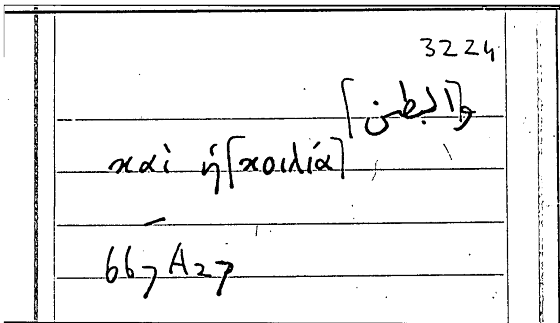 3224
و[البطن]
καὶ ἡ [κοιλία]
667 A27